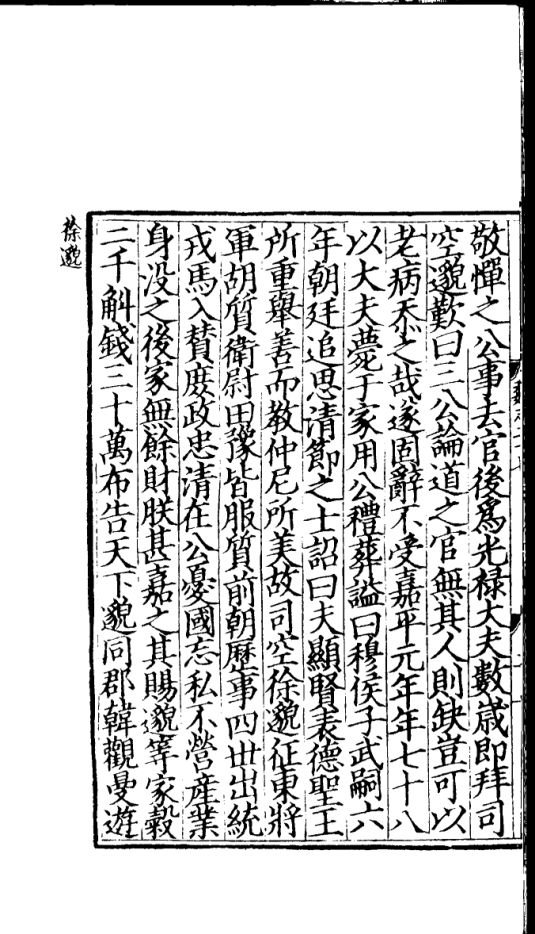 敬憚之公事去官後爲光禄大夫數歳即拜司
空邈歎曰三公論道之官無其人則缺豈可以
老病忝之哉遂固辭不受嘉平元年年七十八
以大夫薨于家用公禮葬謚曰穆侯子武嗣六
年朝廷追思清節之士詔曰夫顯賢表德聖王
所重舉善而教仲尼所美故司空徐邈征東將
軍胡質衛尉田豫皆服質前朝歷事四世出統
戎馬入賛庶政忠清在公憂國忘私不營産業
身没之後家無餘財朕甚嘉之其賜邈等家穀
二千斛錢三十萬布告天下邈同郡韓觀曼遊
徐邈